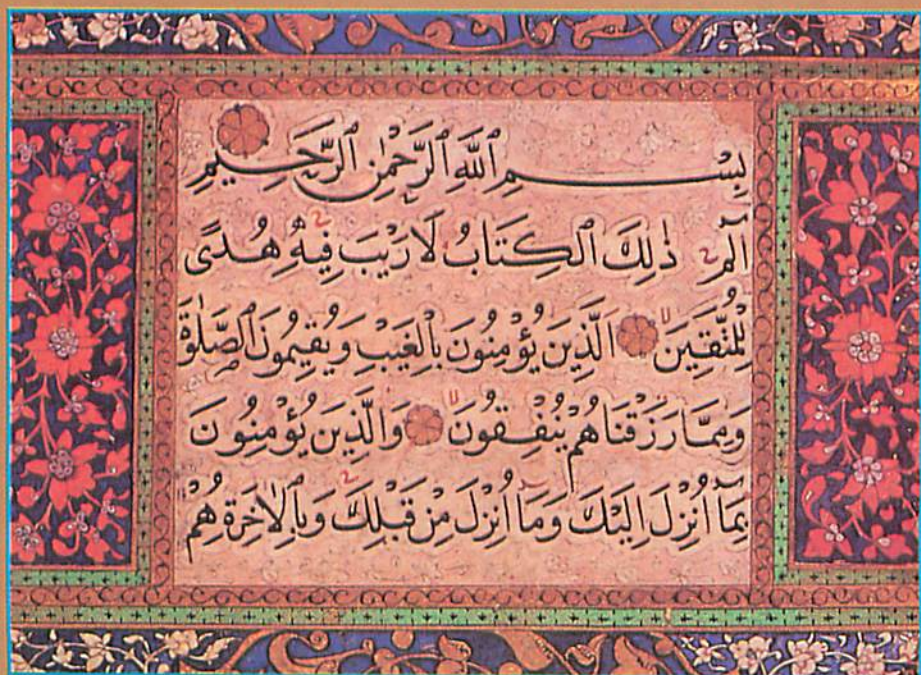 بِسْمِ ٱللَّهِ ٱلرَّحْمٰنِ ٱلرَّحِيمِ
الٓمٓ ذٰلِكَ ٱلْكِتَابُ لَا رَيْبَ فِيهِ هُدًى
لِلْمُتَّقِينَ الَّذِينَ يُؤْمِنُونَ بِالْغَيْبِ وَيُقِيمُونَ ٱلصَّلٰوةَ
وَمِمَّا رَزَقْنَاهُمْ يُنْفِقُونَ وَالَّذِينَ يُؤْمِنُونَ
بِمَٓا أُنْزِلَ إِلَيْكَ وَمَٓا أُنْزِلَ مِنْ قَبْلِكَ وَبِٱلْاٰخِرَةِ هُمْ